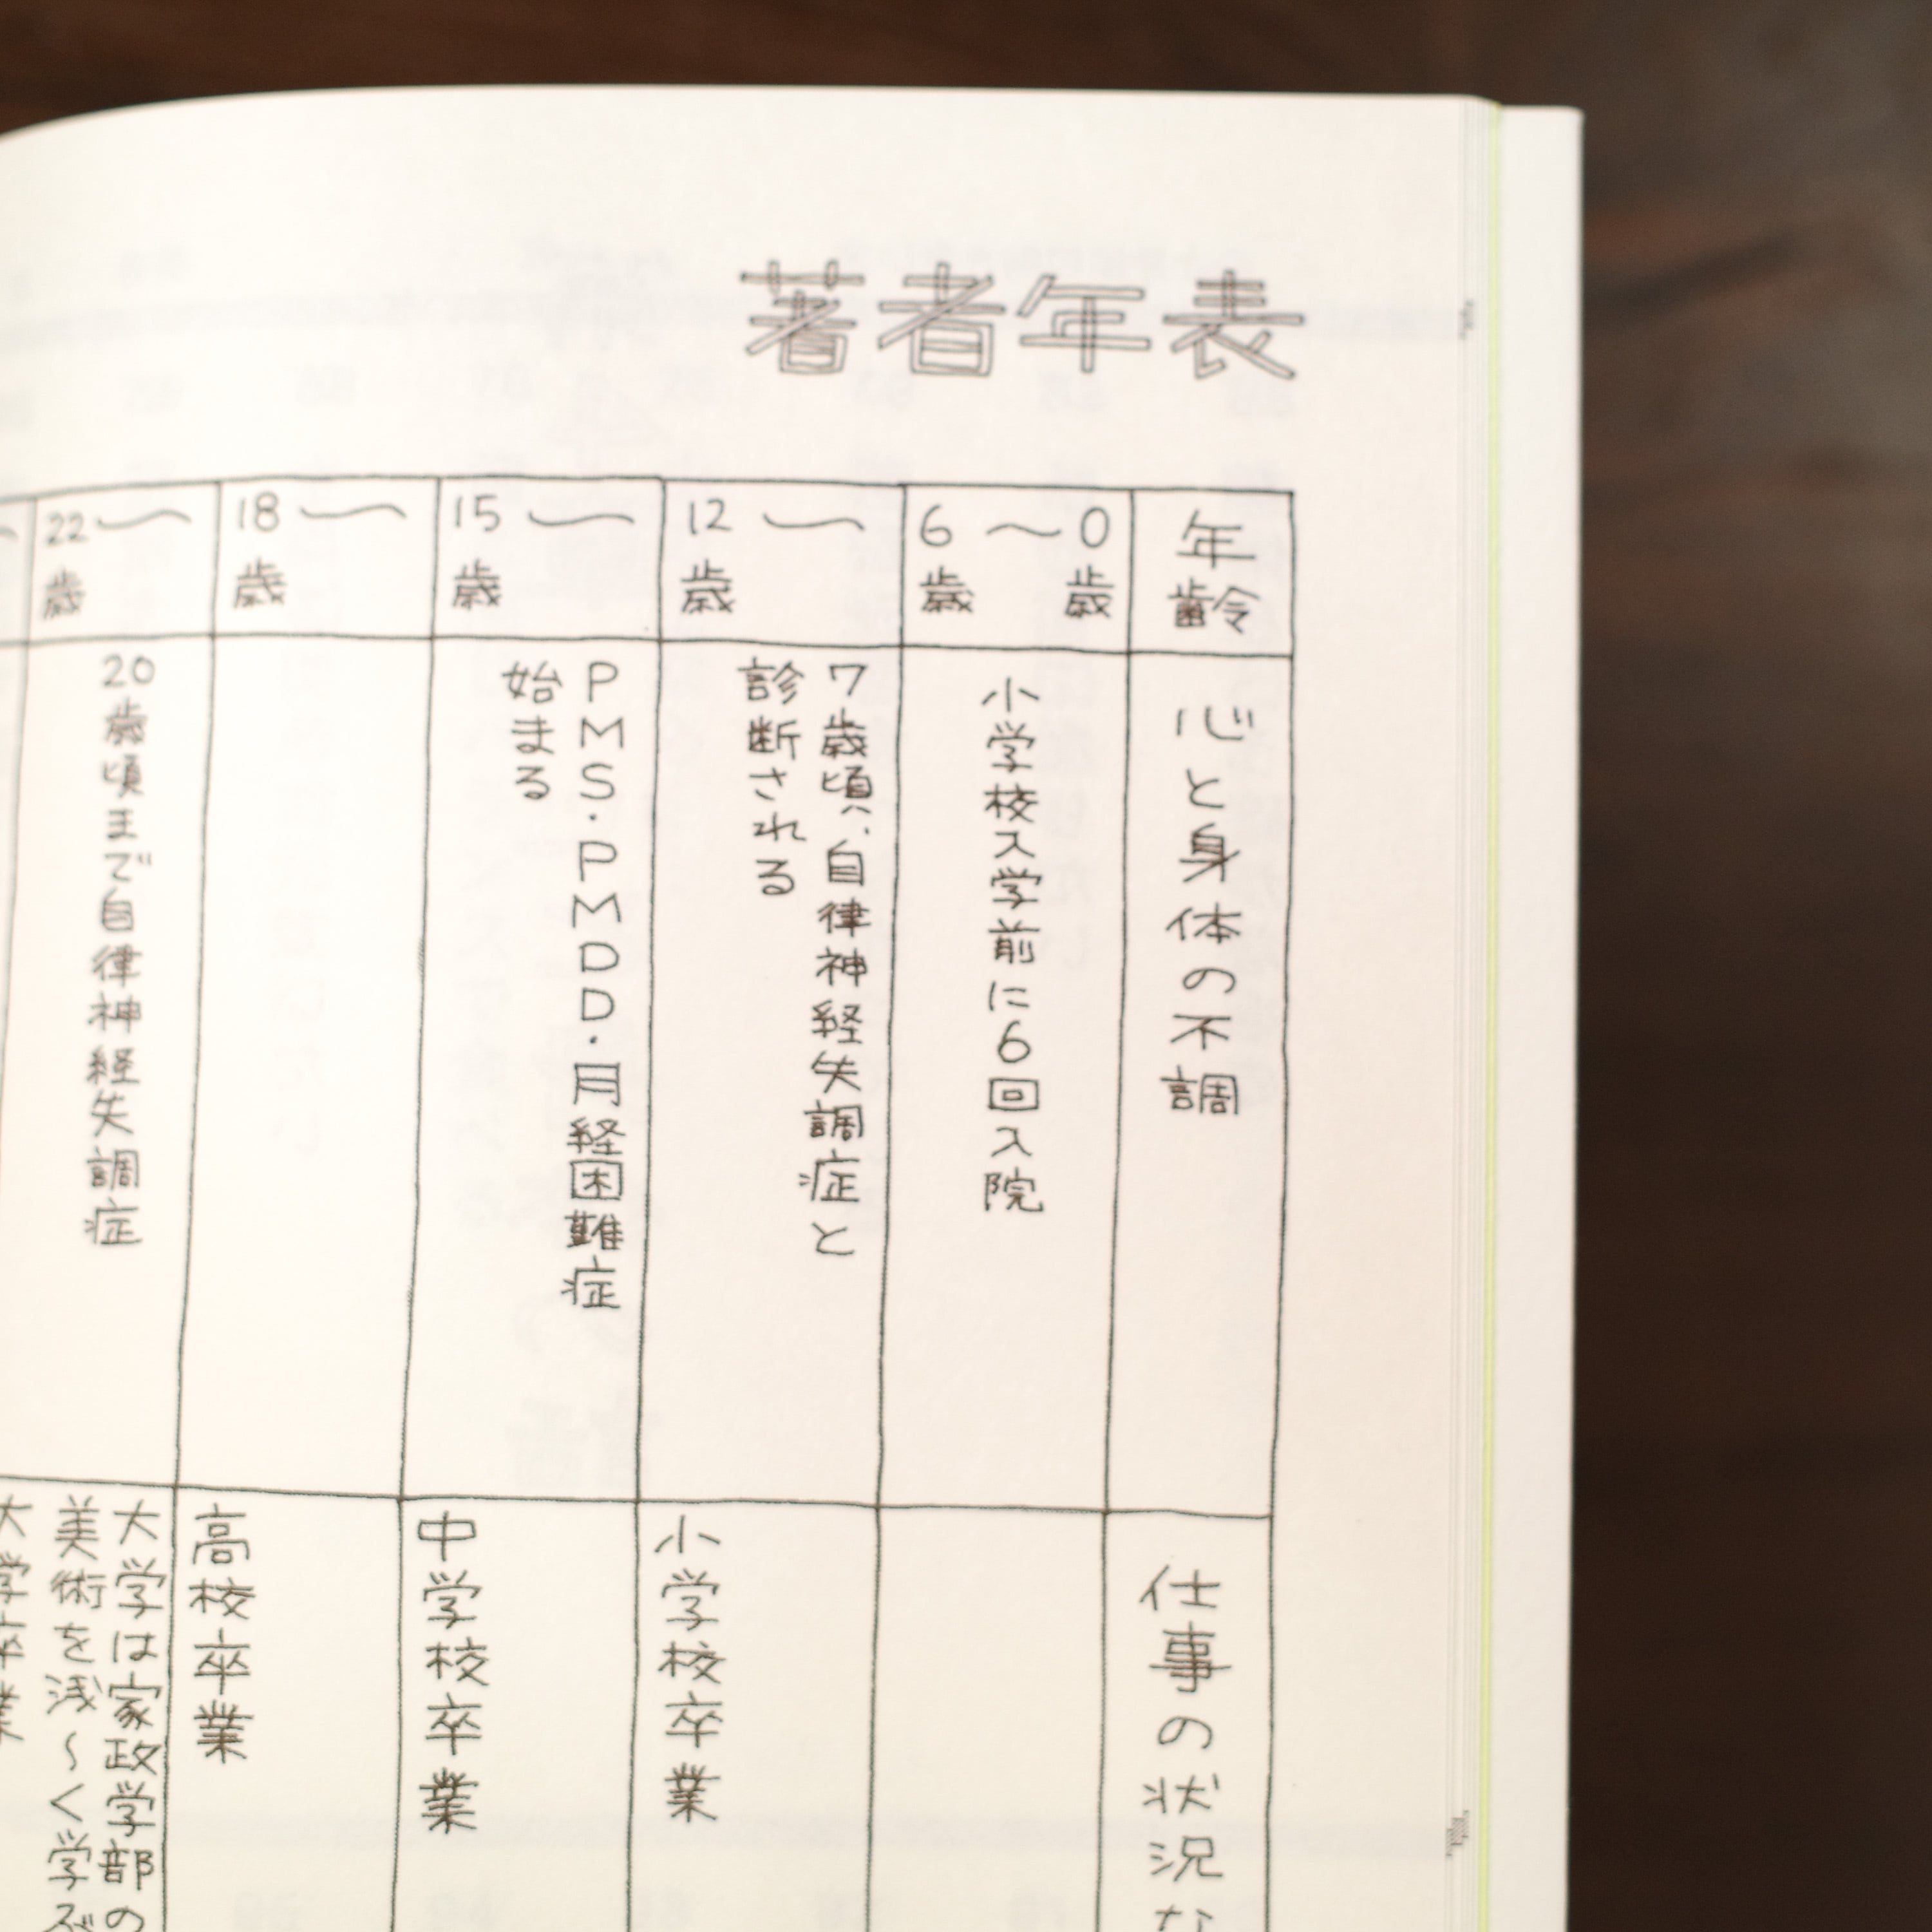 著者年表
年齢
心と身体の不調
仕事の状況な
0歳〜6歳
小学校入学前に6回入院
〜12歳
7歳頃、自律神経失調症と
診断される
小学校卒業
〜15歳
PMS・PMDD・月経困難症
始まる
中学校卒業
〜18歳
高校卒業
〜22歳
20歳頃まで自律神経失調症
大学は家政学部の
美術を浅〜く学ぶ
大学卒業